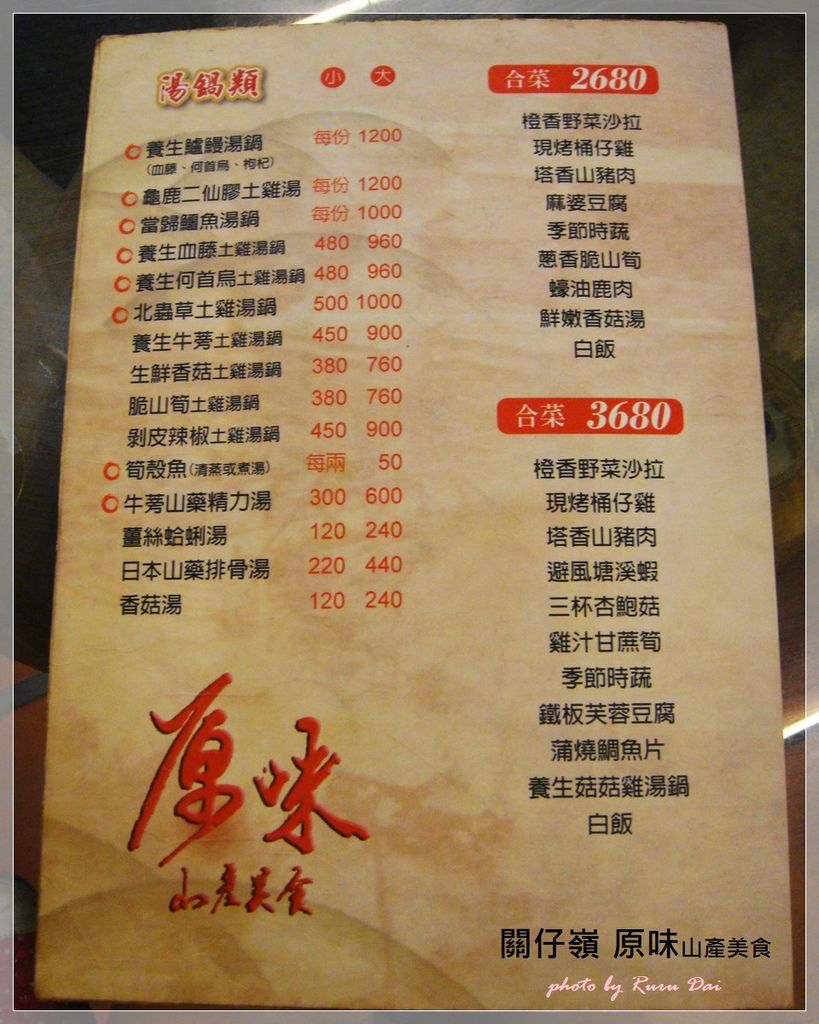 湯鍋類 小 大
養生鱸鰻湯鍋 每份 1200
(血藤、何首烏、枸杞)
龜鹿二仙膠土雞湯 每份 1200
當歸鱷魚湯鍋 每份 1000
養生血藤土雞湯鍋 480 960
養生何首烏土雞湯鍋 480 960
北蟲草土雞湯鍋 500 1000
養生牛蒡土雞湯鍋 450 900
生鮮香菇土雞湯鍋 380 760
脆山筍土雞湯鍋 380 760
剝皮辣椒土雞湯鍋 450 900
筍殼魚(清蒸或煮湯) 每兩 50
牛蒡山藥精力湯 300 600
薑絲蛤蜊湯 120 240
日本山藥排骨湯 220 440
香菇湯 120 240
原味
山產美食
合菜 2680
橙香野菜沙拉
現烤桶仔雞
塔香山豬肉
麻婆豆腐
季節時蔬
蔥香脆山筍
蠔油鹿肉
鮮嫩香菇湯
白飯
合菜 3680
橙香野菜沙拉
現烤桶仔雞
塔香山豬肉
避風塘溪蝦
三杯杏鮑菇
雞汁甘蔗筍
季節時蔬
鐵板芙蓉豆腐
蒲燒鯛魚片
養生菇菇雞湯鍋
白飯
關仔嶺 原味山產美食
photo by Ruru Dai